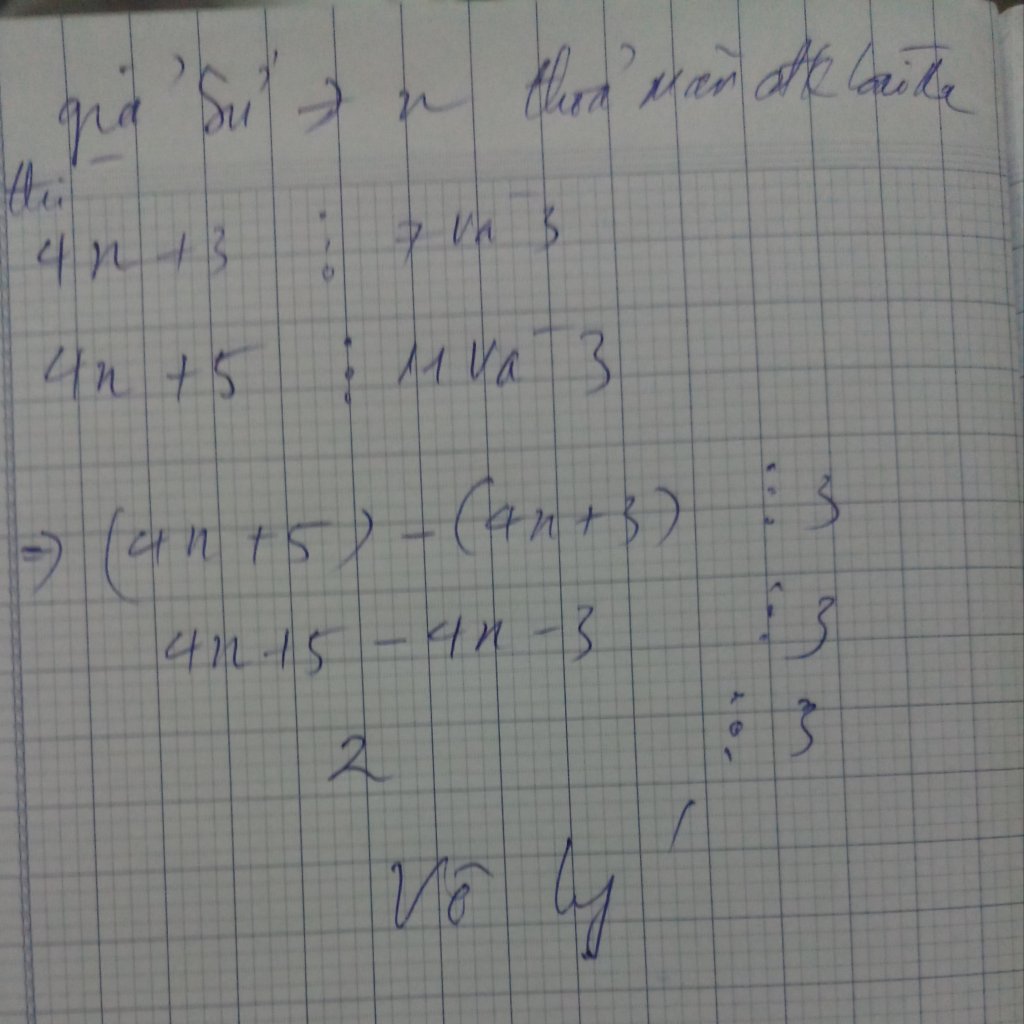 giả sử → n thoả mãn đk bài ra
thì
4n + 3 ⋮ 7 và 3
4n + 5 ⋮ 11 và 3
⇒ (4n + 5) - (4n + 3) ⋮ 3
4n + 5 - 4n - 3 ⋮ 3
2 ⋮ 3
Vô lý